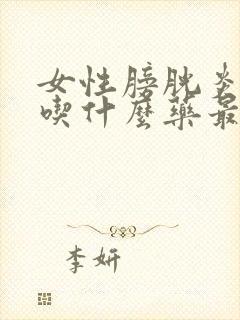 女性膀胱炎
喫什麼藥最
李妍